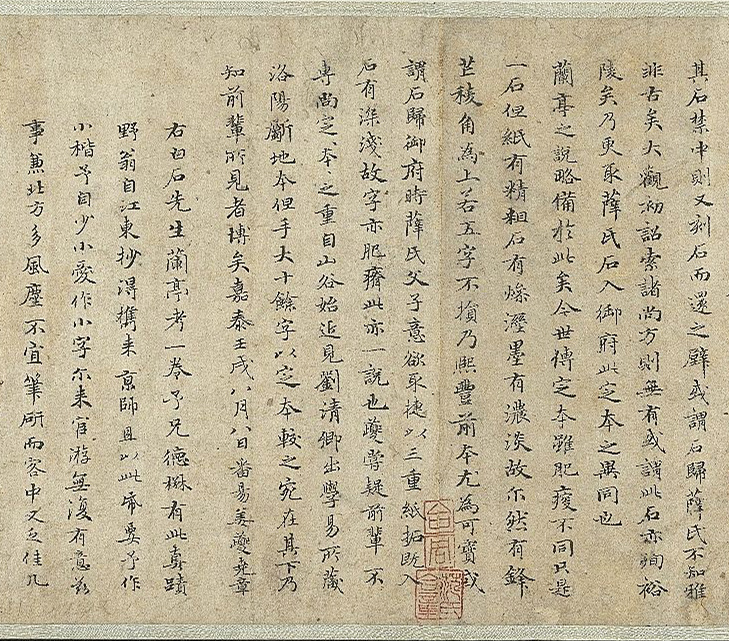 其石禁中則又刻石而還之壁或謂石歸薛氏不知雅
非古矣大觀初詔索諸尚方則無有或謂此石亦殉裕
陵矣乃更取薛氏石入御府此定本之異同也
蘭亭之說略備於此矣今世傳定本雖肥瘦不同只是
一石但紙有精粗石有燥溼墨有濃淡故尔然有鋒
芒稜角為上若五字不損乃熙豐前本尤為可寶或
謂石歸御府時薛氏父子意欲取捷以三重紙拓既入
石有深淺故字亦肥瘠此亦一說也夔嘗疑前輩不
專尚定本之重自山谷始近見劉清卿出學易所藏
洛陽斷地本但手大十餘字以定本較之宛在其下乃
知前輩所見者博矣嘉泰壬戌八月八日番昜姜夔堯章
右白石先生蘭亭考一卷予兄德楙有此真蹟
野翁自江東抄得攜来京師且以此帋要予作
小楷予自少小愛作小字尔来官游無復有意茲
事兼北方多風塵不宜筆研而客中又乏佳几